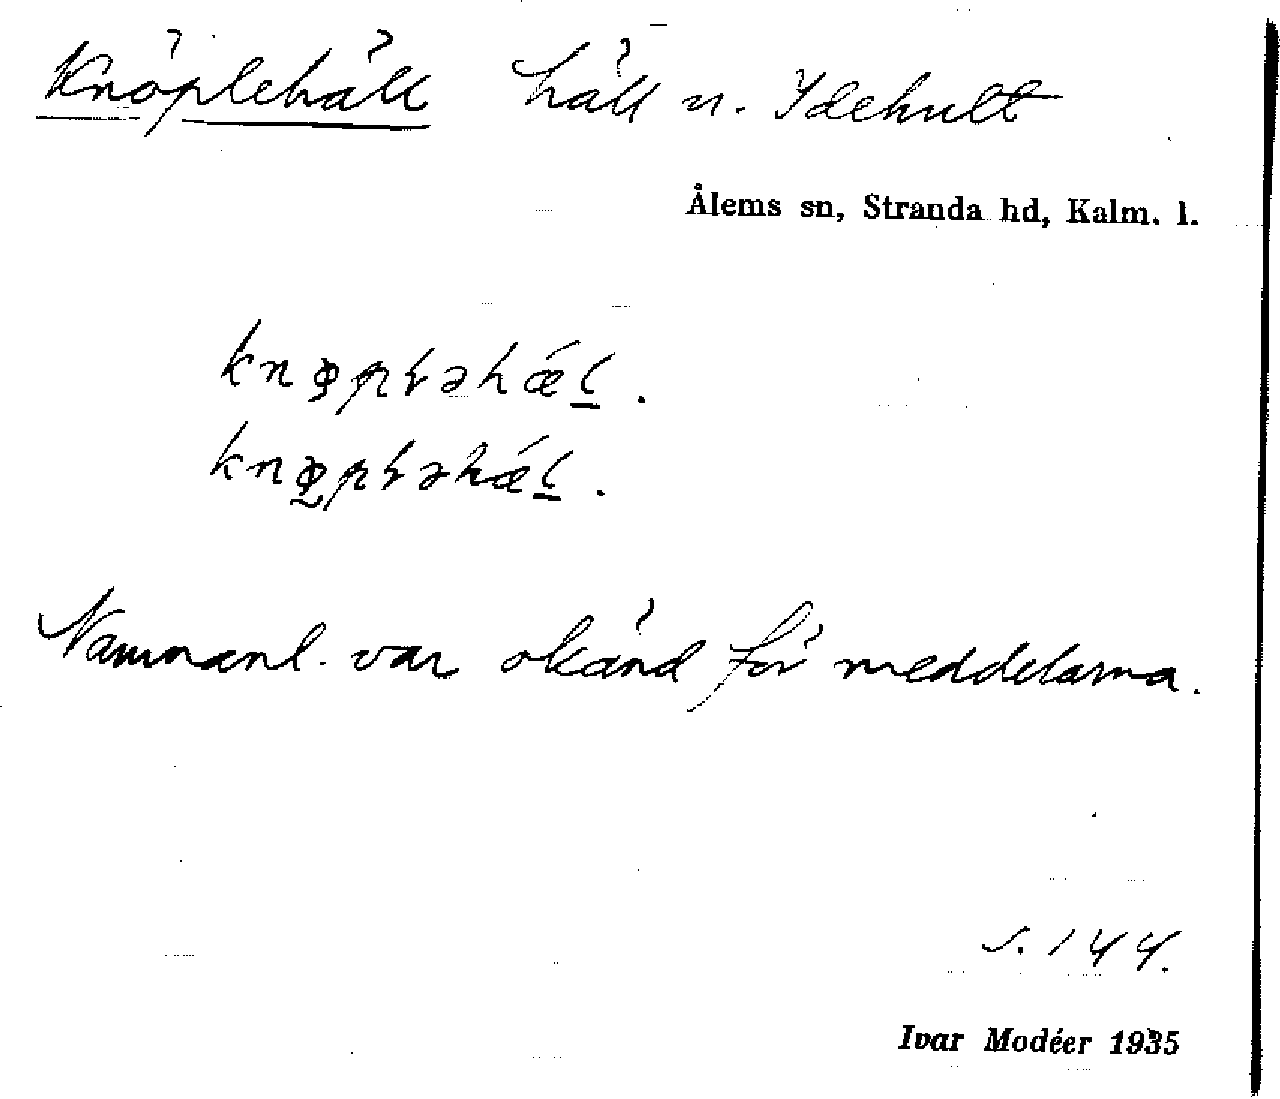 Knöplehäll häll n. Ydehult
Ålems sn, Stranda hd, Kalm. l.
Namnanl. var okänd för meddelarna.
s. 144.
Ivar Modéer 1935